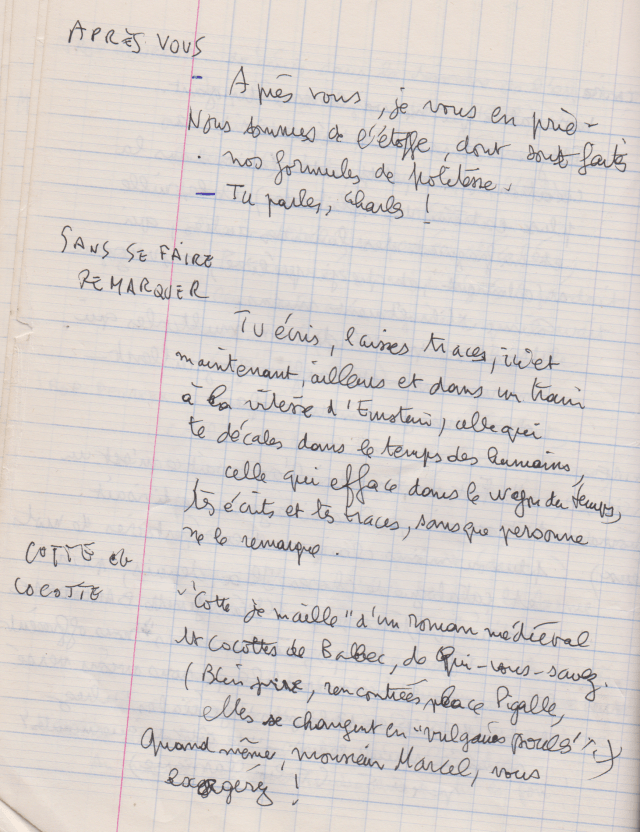 APRÈS VOUS
- Après vous, je vous en prie -
Nous sommes de l'étoffe, dont sont faites
nos formules de politesse.
- Tu parles, Charles !
SANS SE FAIRE
REMARQUER
Tu écris, laisses traces, ici et
maintenant, ailleurs et dans un train
à la vitesse d'Einstein, celle qui
te décales dans le temps des humains,
celle qui efface dans le wagon du temps,
tes écrits et tes traces, sans que personne
ne le remarque.
COTTE et
COCOTTE
"Cotte je maille" d'un roman médiéval
et cocottes de Balbec, de Qui-vous-savez.
(Bien pire, rencontrées place Pigalle,
elles se changent en "vulgaires poules".)
Quand même, monsieur Marcel, vous
exagérez !